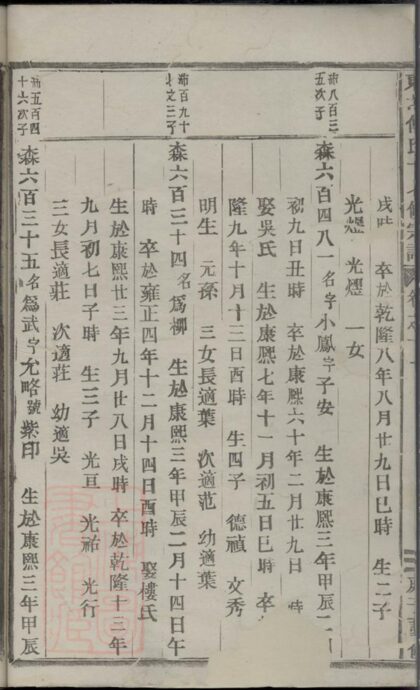 戌時 卒於乾隆八年八月廿九日巳時 生二子
光煙 光煜 一女
沛八百三
五次子
森六百四八一名字小鳳字子安 生於康熙三年甲辰二
初九日丑時 卒於康熙六十年二月廿九日 時
娶吳氏 生於康熙七年十一月初五日巳時 卒
隆九年十月十三日時 生四子 德禎 文秀
明生 元孫 三女長適葉 次適范 幼適葉
沛百九十
三子
森六百三十四名爲柳 生於康熙三年甲辰二月十四日午
時 卒於雍正四年十二月十四日酉時 娶樓氏
生於康熙廿三年九月廿八日戌時 卒於乾隆十三年
九月初七日子時 生三子 光亘 光祐 光行
三女長適莊 次適莊 幼適吳
沛五百四
十六次子
森六百三十五名爲武字允略號紫印 生於康熙三年甲辰